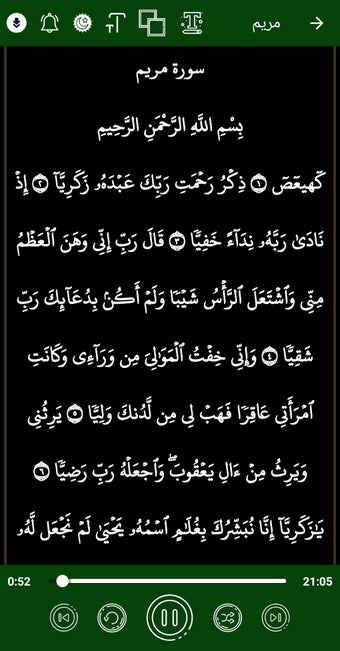 مريم
سورة مريم
بِسْمِ اللَّهِ الرَّحْمَنِ الرَّحِيمِ
كٓهيعٓصٓ ١ ذِكْرُ رَحْمَتِ رَبِّكَ عَبْدَهُۥ زَكَرِيَّآ ٢ إِذْ
نَادَىٰ رَبَّهُۥ نِدَآءً خَفِيًّا ٣ قَالَ رَبِّ إِنِّى وَهَنَ ٱلْعَظْمُ
مِنِّى وَٱشْتَعَلَ ٱلرَّأْسُ شَيْبًا وَلَمْ أَكُنۢ بِدُعَآئِكَ رَبِّ
شَقِيًّا ٤ وَإِنِّى خِفْتُ ٱلْمَوَٰلِىَ مِن وَرَآءِى وَكَانَتِ
ٱمْرَأَتِى عَاقِرًا فَهَبْ لِى مِن لَّدُنكَ وَلِيًّا ٥ يَرِثُنِى
وَيَرِثُ مِنْ ءَالِ يَعْقُوبَ ۖ وَٱجْعَلْهُ رَبِّ رَضِيًّا ٦
يَٰزَكَرِيَّآ إِنَّا نُبَشِّرُكَ بِغُلَٰمٍ ٱسْمُهُۥ يَحْيَىٰ لَمْ نَجْعَل لَّهُۥ
0:52 21:05